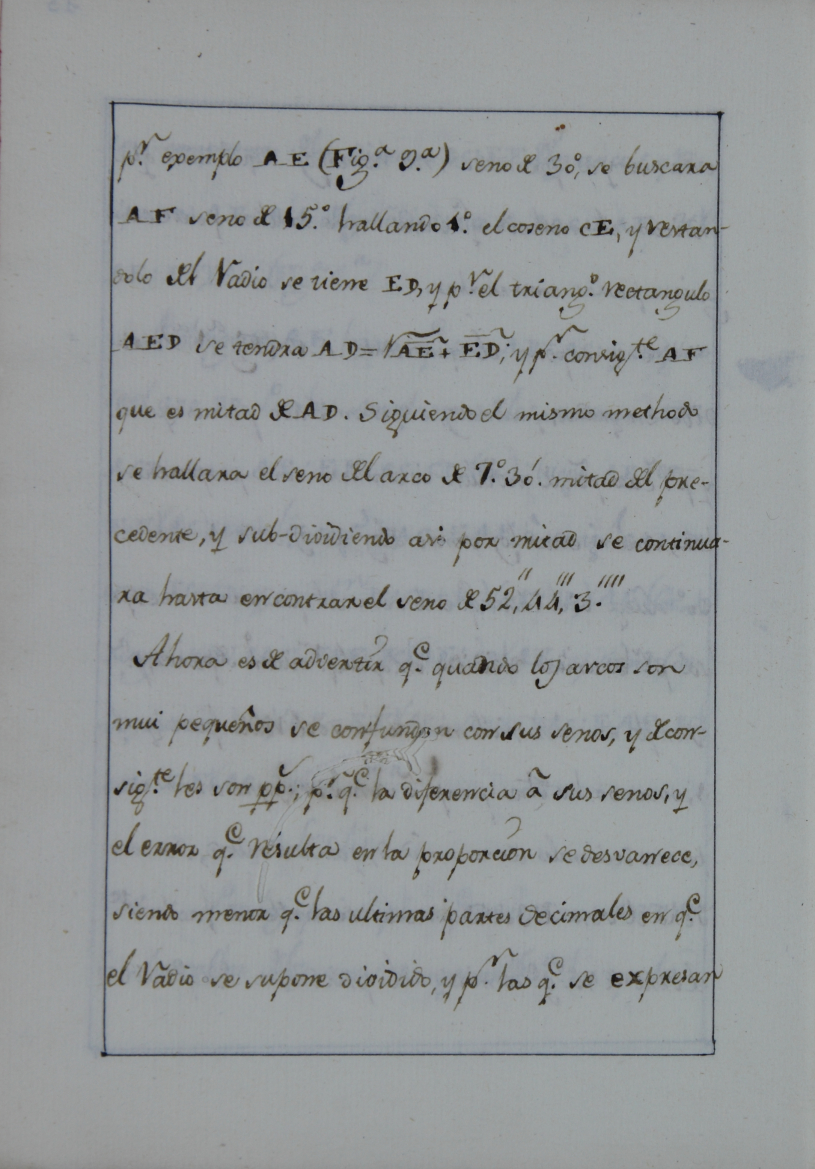 p.r exemplo AE (Fig.a 9.a) seno de 30°, se buscara
AF seno de 15.° hallando 1.° el coseno CE, y restan-
dolo del Radio se tiene ED, y p.r el triang.o rectangulo
AED se tendra AD=√AE²+ED², y p.r consig.te AF
que es mitad de AD. Siguiendo el mismo methodo
se hallara el seno del arco de 7.° 30'. mitad del pre-
cedente, y sub-dividiendo asi por mitad se continua-
ra hasta encontrar el seno de 52,'' 44,''' 3.''''
Ahora es de advertir q.e quando los arcos son
mui pequeños se confunden con sus senos, y de con-
sig.te les son pp.s; p.r q.e la diferencia â sus senos, y
el error q.e resulta en la proporcion se desvanece,
siendo menor q.e las ultimas partes decimales en q.e
el Radio se supone dividido, y p.r las q.e se expresan